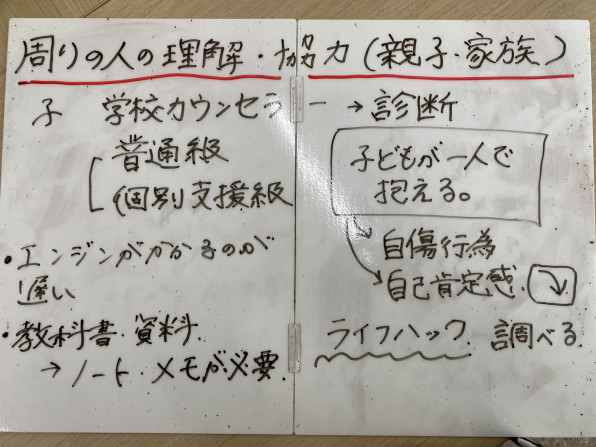 周りの人の理解・協力(親子・家族)
子 学校カウンセラー → 診断
普通級
個別支援級
・エンジンがかかるのが
遅い
・教科書・資料
→ ノート・メモが必要.
子どもが一人で
抱える。
自傷行為
自己肯定感. ↘
ライフハック. 調べる.